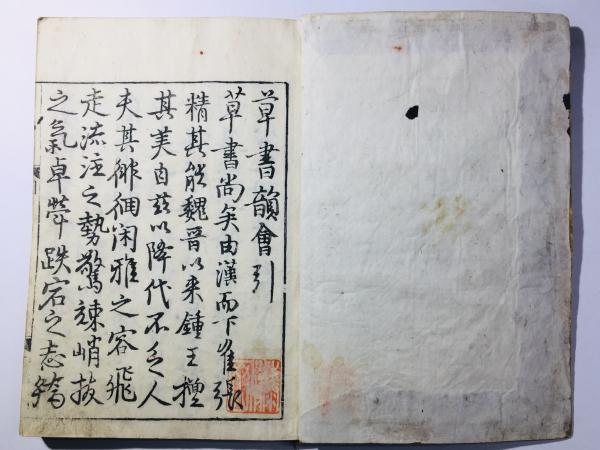 草書韻會引
草書尚矣由漢而下崔張
精其能魏晉以来鍾王擅
其美自茲以降代不乏人
夫其徘徊閑雅之容飛
走流注之勢驚竦峭拔
之氣卓犖跌宕之志矯